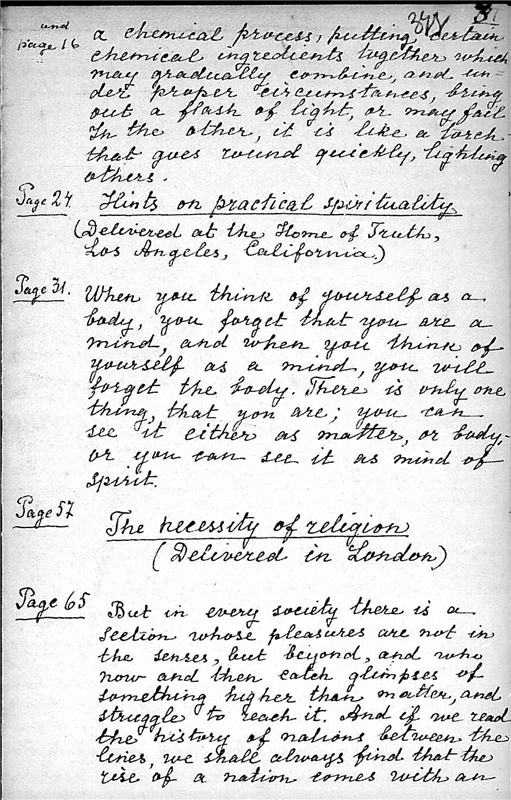 and
page 16
a chemical process, putting certain
chemical ingredients together which
may gradually combine, and un-
der proper circumstances, bring
out a flash of light, or may fail
In the other, it is like a torch
that goes round quickly, lighting
others.
Page 24 Hints on practical spirituality
(Delivered at the Home of Truth,
Los Angeles, California.)
Page 31. When you think of yourself as a
body, you forget that you are a
mind, and when you think of
yourself as a mind, you will
forget the body. There is only one
thing, that you are; you can
see it either as matter, or body,-
or you can see it as mind of
spirit.
Page 57
The necessity of religion
(Delivered in London)
Page 65 But in every society there is a
section whose pleasures are not in
the senses, but beyond, and who
now and then catch glimpses of
something higher than matter, and
struggle to reach it. And if we read
the history of nations between the
lines, we shall always find that the
rise of a nation comes with an